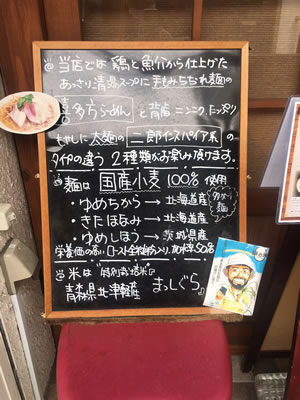 ◎当店では鶏と魚介から仕上げた
あっさり清湯スープに手もみちぢれ麺の
喜多方らーめんと背脂ニンニクたっぷり
もやしに太麺の二郎インスパイア系の
タイプの違う2種類がお楽しみ頂けます。
◎麺は国産小麦100%使用
・ゆめちから→北海道産
・きたほなみ→北海道産
・ゆめしほう→茨城県産
栄養価の高いロースト全粒粉入り、加水率50%
◎お米は『特別栽培米』
青森県北津軽産まっしぐら』